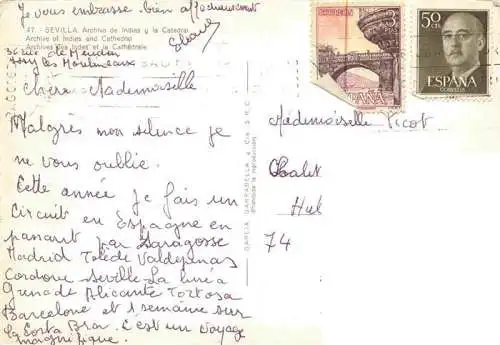 Je vous embrasse bien affectueusement
47. - SEVILLA. Archivo de Indias y la Catedral
Archives of Indies and Cathedral
Archives des Indes et la Cathédrale
Issy les Moulineaux
Chère Mademoiselle
Malgrès mon silence je
ne vous oublie.
Cette année je fais un
circuit en Espagne en
passant par Saragosse
Madrid Tolède Valdepenas
Cordoue Seville La Linéa
Grenade Alicante Tortosa
Barcelone et 1 semaine sur
la Costa Brava. C'est un voyage
magnifique.
GARCIA GARRABELLA y Cía
3
PTAS
ESPAÑA
50
CTS
ESPAÑA
CORREOS
Mademoiselle Picot
Chalet
74